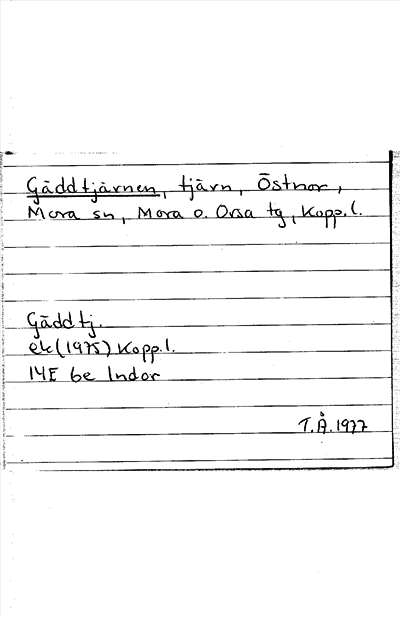 Gäddtjärnen, tjärn, Östnor,
Mora sn, Mora o. Orsa tg, Kopp. l.
Gädd tj.
ek (1975) Kopp. l.
14E 6e Indor
T.Å. 1977